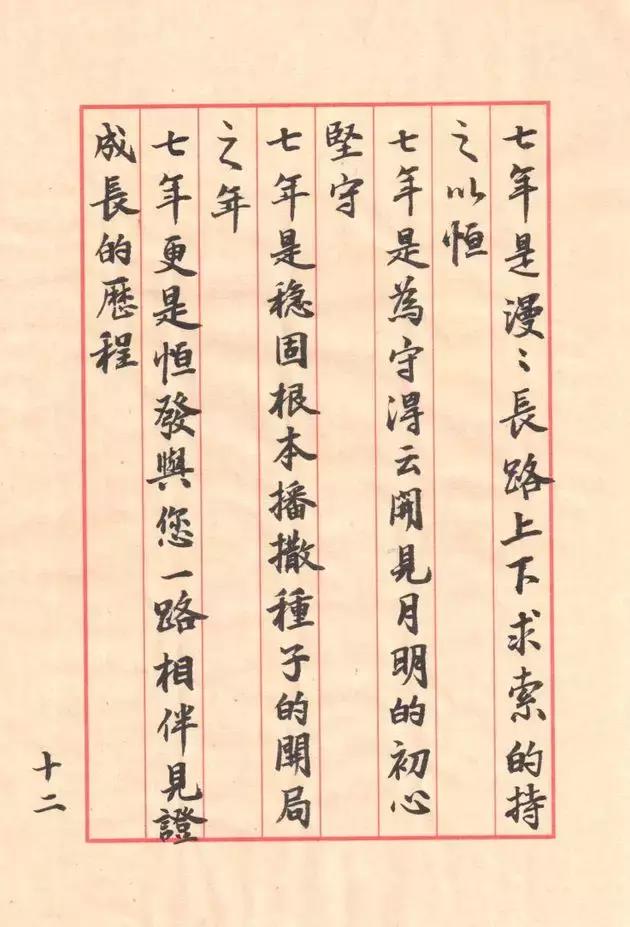 七年是漫〻長路上下求索的持
之以恒
七年是為守得云開見月明的初心
堅守
七年是稳固根本播撒種子的開局
之年
七年更是恒發與您一路相伴見證
成長的歷程
十二